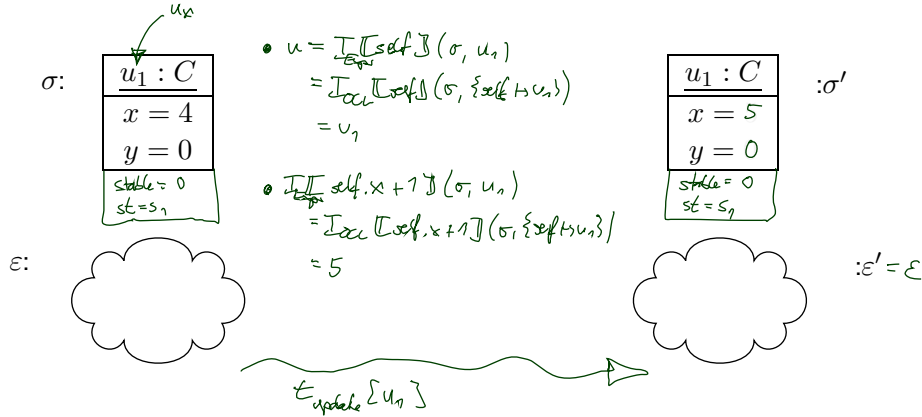 u_x
σ:
u₁ : C
x = 4
y = 0
stable = 0
st = s₁
• u = I_Expr⟦self⟧(σ, u₁)
= I_OCL⟦self⟧(σ, {self ↦ u₁})
= u₁
• I_Expr⟦self.x + 1⟧(σ, u₁)
= I_OCL⟦self.x + 1⟧(σ, {self ↦ u₁})
= 5
u₁ : C
:σ′
x = 5
y = 0
stable = 0
st = s₁
ε:
:ε′ = ε
t_update[u₁]